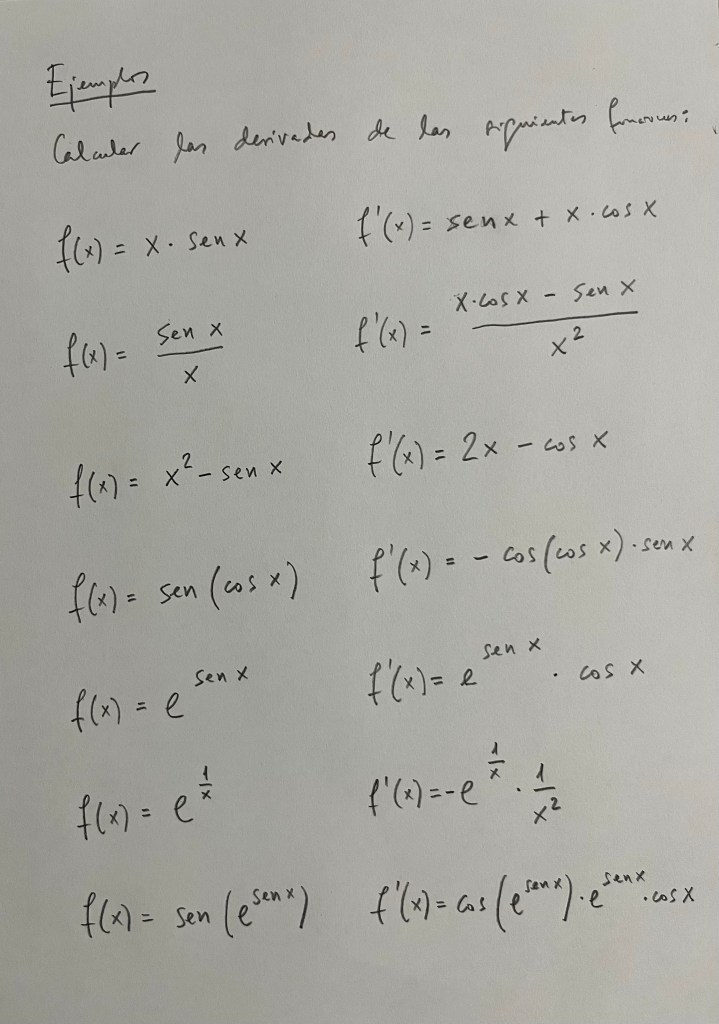 Ejemplos
Calcular las derivadas de las siguientes funciones:
f(x) = x · sen x f'(x) = sen x + x · cos x
f(x) = sen x / x f'(x) = x·cos x - sen x / x²
f(x) = x² - sen x f'(x) = 2x - cos x
f(x) = sen (cos x) f'(x) = - cos (cos x) · sen x
f(x) = e^(sen x) f'(x) = e^(sen x) · cos x
f(x) = e^(1/x) f'(x) = -e^(1/x) · 1/x²
f(x) = sen (e^(sen x)) f'(x) = cos (e^(sen x)) · e^(sen x) · cos x